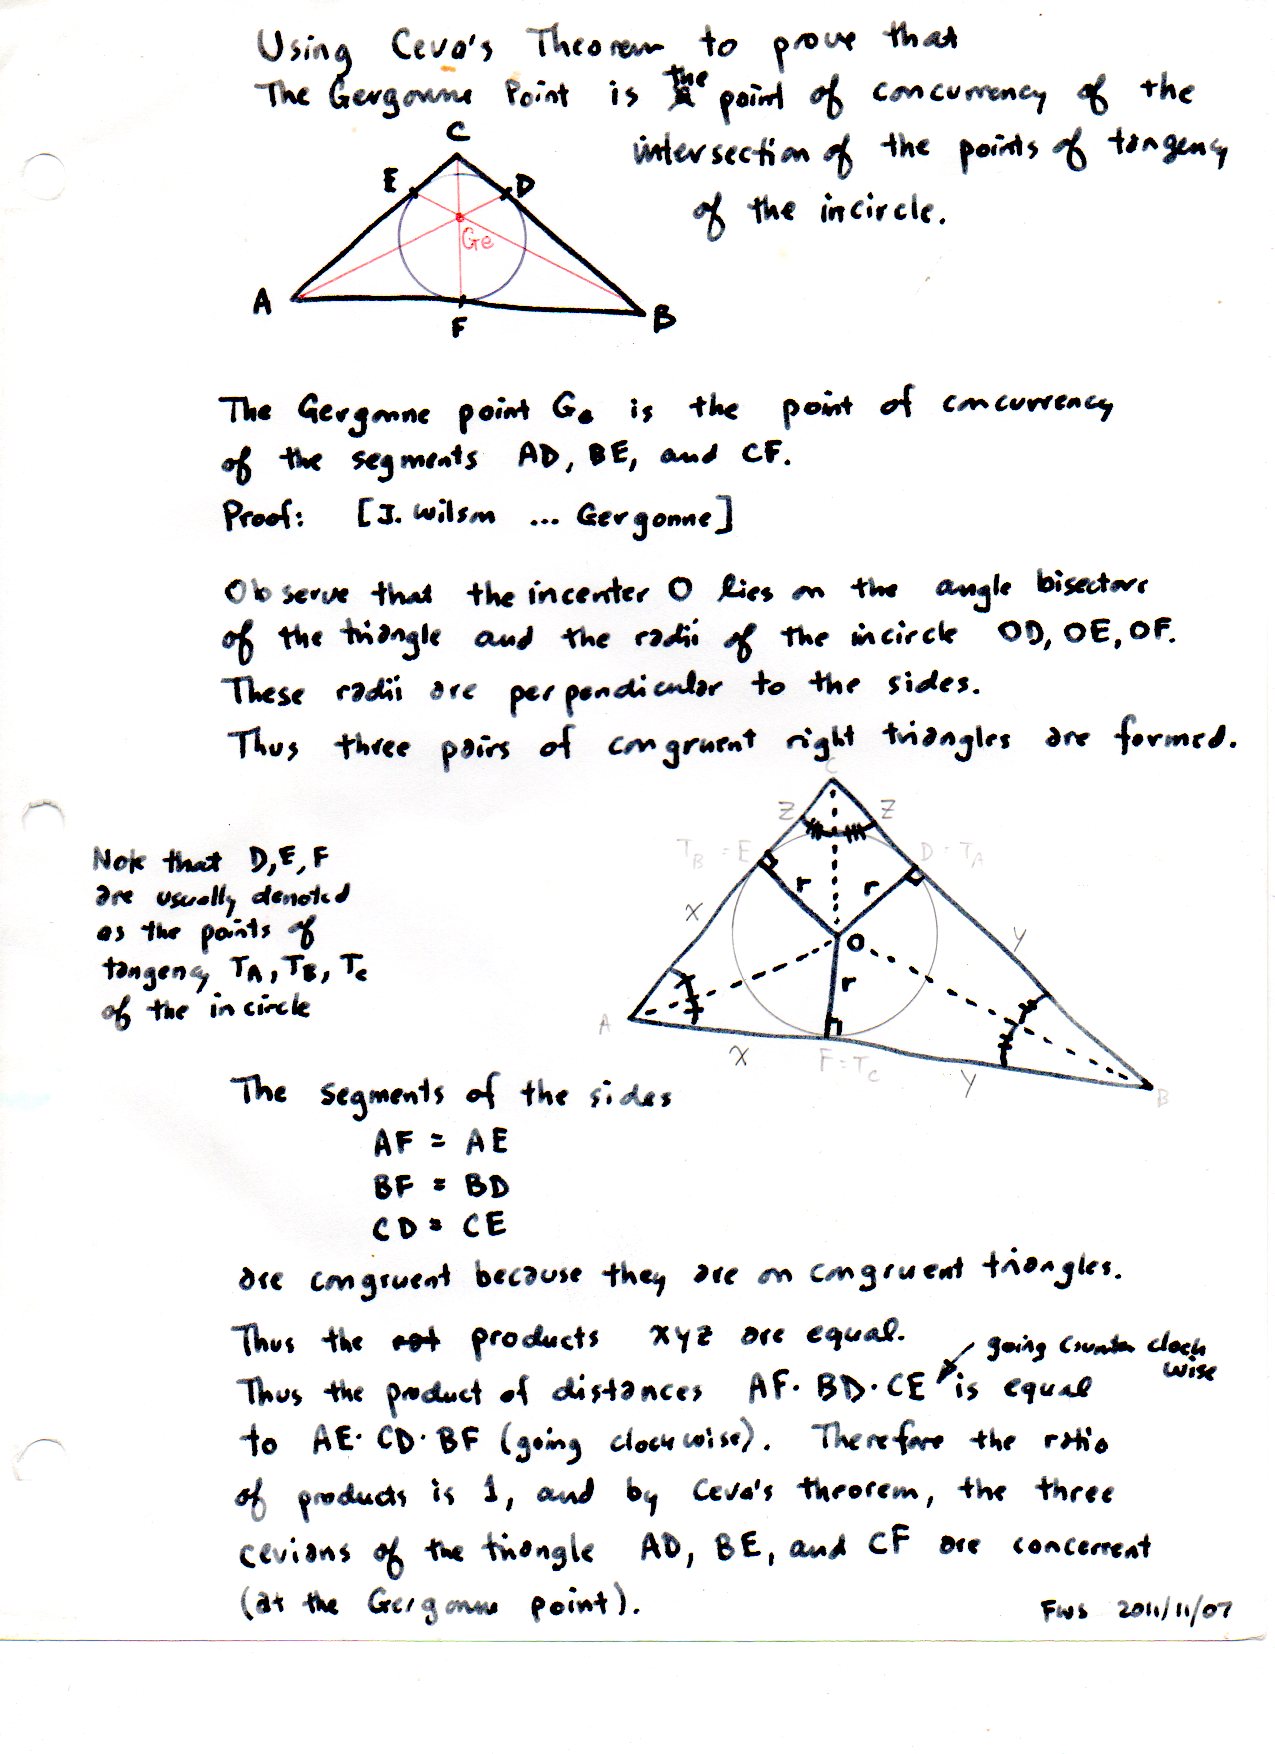 Using Ceva's Theorem to prove that
The Gergonne Point is the point of concurrency of the
intersection of the points of tangency
of the incircle.
C
E D
Ge
A
F
B
The Gergonne point Ge is the point of concurrency
of the segments AD, BE, and CF.
Proof: [J. Wilson ... Gergonne]
Observe that the incenter O lies on the angle bisectors
of the triangle and the radii of the incircle OD, OE, OF.
These radii are perpendicular to the sides.
Thus three pairs of congruent right triangles are formed.
C
Z Z
TB = E D = TA
r r
x
O
y
r
A
x
F = TC
y
B
Note that D, E, F
are usually denoted
as the points of
tangency TA, TB, Tc
of the incircle
The segments of the sides
AF = AE
BF = BD
CD = CE
are congruent because they are on congruent triangles.
Thus the products xyz are equal.
going counter clock
wise
Thus the product of distances AF · BD · CE is equal
to AE · CD · BF (going clockwise). Therefore the ratio
of products is 1, and by Ceva's theorem, the three
cevians of the triangle AD, BE, and CF are concerrent
(at the Gergonne point).
FWS 2011/11/07